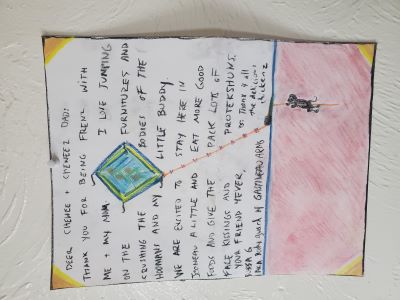 DEER CHEWEE + CHEWEEZ DAD:
THANK YOU FOR BEING FRENZ WITH
ME + MY MOM. I LOVE JUMPING
ON THE FURNITUREZ AND
CRUSHING THE BODIES OF THE
HOOMANS AND MY LITTLE BUDDY.
WE ARE EXCITED TO STAY HERE IN
JOONEAU A LITTLE AND EAT MORE GOOD
FOODS AND GIVE THE PACK LOTS OF
FACE KISSINGS AND PROTEKSHUNS.
YOUR FRIEND 4EVER,
PS: THANX 4 all
the delicious
chickenz
AKA Bodyguard of GASTINEAU ARMS